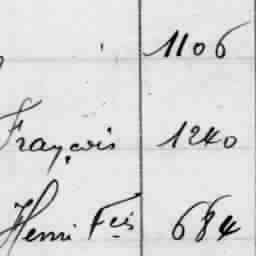 1106
François 1240
Henri Fçis 684